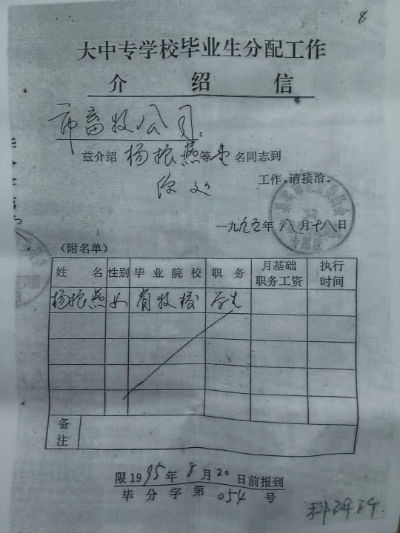 8
大中专学校毕业生分配工作
介 绍 信
市畜牧公司:
兹介绍 杨振燕 等 名同志到
你处 工作,请接洽。
一九九五年 八月十八日
(附名单)
姓 名 性别 毕业院校 职务 月基础职务工资 执行时间
杨振燕 女 畜牧校 学生
备注
限1995年8月20日前报到
毕分字第054号